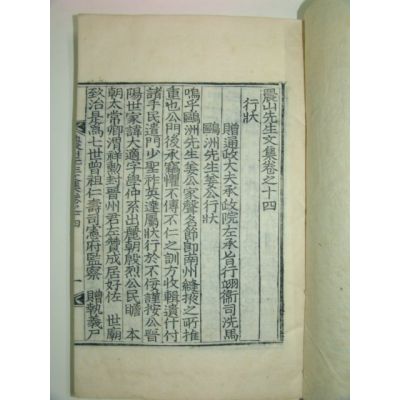 農山先生文集卷之十四
行狀
贈通政大夫承政院左承旨行翊衛司洗馬
鷗洲先生姜公行狀
嗚乎鷗洲先生姜公家聲名節卽南州縫掖之所推
重也公門後承竊懼不傳不仁之訓方收輯遺什付
諸手民遣門少聖祚英達屬狀行於不佞謹按公晉
陽世家諱大適字學仲系出麗朝殷烈公民瞻 本
朝太常卿渭祥勳封晉州君左贊成居好佐 世廟
致治是爲七世曾祖仁壽司憲府監察 贈執義尸